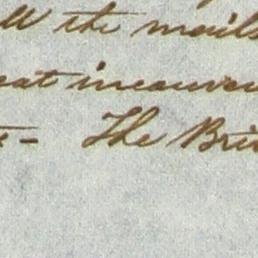 ll the mails
eat inconven
- The Brit